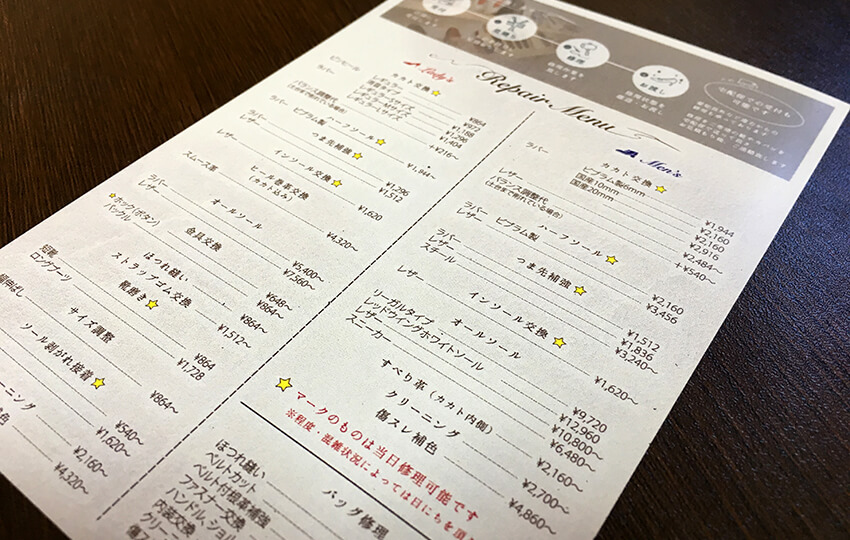 Repair Menu
Lady's
カカト交換
ピンヒール
レギュラー ¥864
薄型タイプ ¥972
ラバー
レギュラーSサイズ ¥1,188
レギュラーMサイズ ¥1,296
レギュラーLサイズ ¥1,404
バランス調整代 +¥216~
(土台まで削れている場合)
ハーフソール
ラバー ¥1,944~
つま先補強
ラバー ¥1,296
レザー ¥1,512
インソール交換
¥1,620
ヒール巻革交換
(カカト込み)
スムース革 ¥4,320~
オールソール
ラバー ¥5,400~
レザー ¥7,560~
金具交換
ホック(ボタン) ¥648~
バックル ¥864~
ほつれ縫い
¥864~
ストラップゴム交換
¥1,512~
靴磨き
短靴 ¥864
ロングブーツ ¥1,728
サイズ調整
¥864~
ソール剥がれ接着
¥540~
¥1,620~
¥2,160~
¥4,320~
Men's
カカト交換
ラバー
ビブラム製6mm ¥1,944
国産10mm ¥2,160
国産20mm ¥2,160
レザー ¥2,916
バランス調整代 ¥2,484~
(土台まで削れている場合) +¥540~
ハーフソール
ラバー ビブラム製 ¥2,160
レザー ¥3,456
つま先補強
ラバー ¥1,512
レザー ¥1,836
スチール ¥3,240~
インソール交換
レザー ¥1,620~
オールソール
リーガルタイプ ¥9,720
レッドウイングホワイトソール ¥12,960
レザー ¥10,800~
スニーカー ¥6,480~
すべり革(カカト内側)
¥2,160~
クリーニング
¥2,700~
傷スレ補色
¥4,860~
マークのものは当日修理可能です
※程度・混雑状況によっては日にちを頂
バッグ修理
ほつれ縫い
ベルトカット
ベルト付根革補強
ファスナー交換
ハンドル、ショル
内装交換
クリーニ